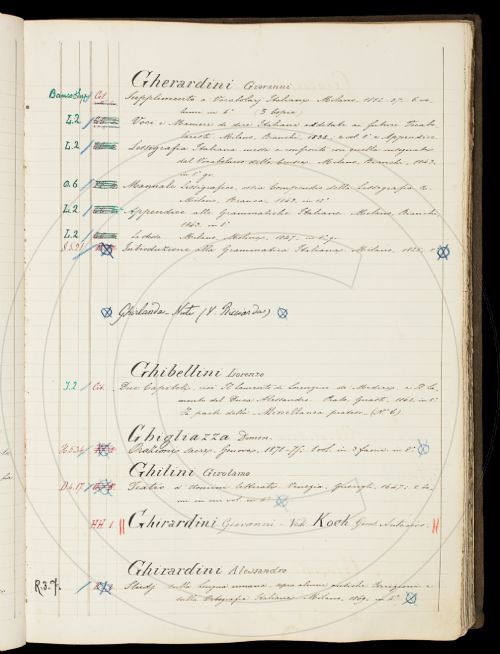 Gherardini Giovanni
Supplimento a' Vocabolarj Italiani. Milano, 1852-57. 6 vo-
lumi in 8° (3 Copie)
L.2 Voci e Maniere di dire Italiane additate a' futuri Vocabo-
Milano, Bianchi, 1838, 2 vol. 8° e Appendice
L.2 Lessigrafia Italiana messa a confronto con quella insegnata
dal Vocabolario della Crusca. Milano, Bianchi, 1843.
in 8° gr.
O.6 Manuale Lessigrafico, ossia Compendio della Lessigrafia &
Milano, Branca, 1843, in 12°
L.2 Appendice alle Grammatiche Italiane. Milano, Bianchi,
1843, in 8°
L.2 La stessa Milano, Molina, 1847, in 8° gr.
Introduzione alla Grammatica Italiana. Milano, 1825, 8°
Ghirlanda (V. Ricciardi)
Ghibellini Lorenzo
J.2 Cred. Due Capitoli, cioè Il lamento di Lorenzino de' Medici, e Il La-
mento del Duca Alessandro. Prato, Guasti, 1862, in 8°
Fa parte della Miscellanea pratese (N° 6)
Ghigliazza Simon.
Orazioni sacre. Genova, 1871-75. vol. in 3 in 8°
Ghilini Girolamo
D.4.17 Teatro d'Uomini letterati. Venezia, Guerigli, 1647. 2 to-
mi in un vol. in 4°
HH 1 Ghirardini Giovanni - Vedi Koch Giov. Antonio.
Ghirardini Alessandro
R.3.7. Studj sulla lingua umana, sopra alcune antiche Iscrizioni e
sulla Ortografia Italiana. Milano, 1869, in 8°